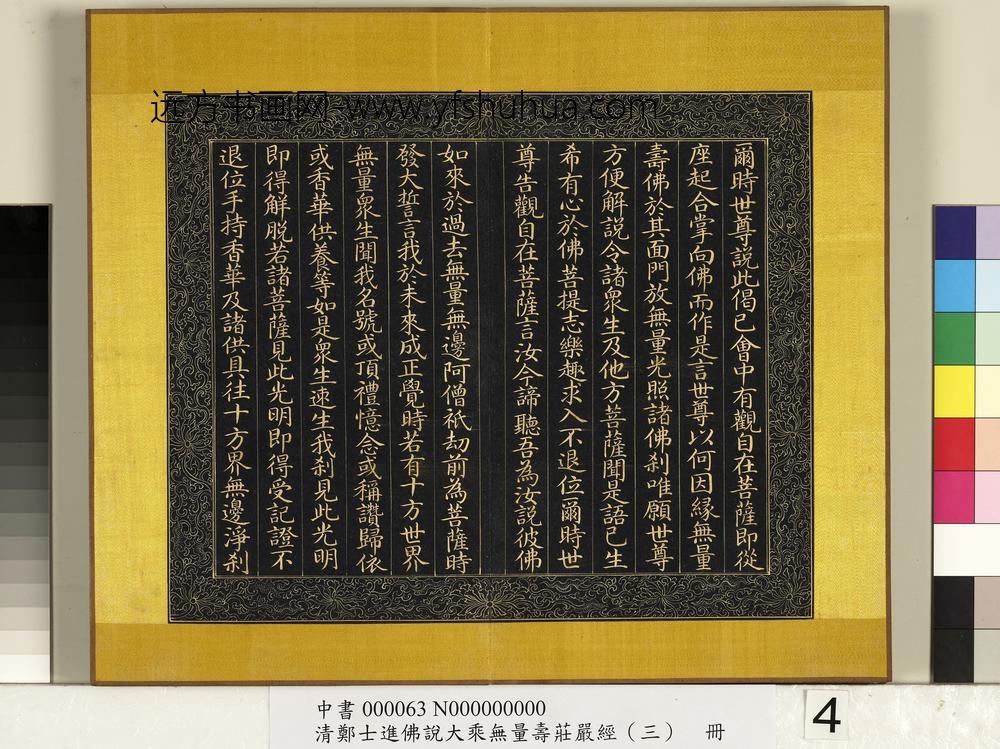 远方书画网-www.yfshuhua.com
爾時世尊說此偈已會中有觀自在菩薩即從
座起合掌向佛而作是言世尊以何因緣無量
壽佛於其面門放無量光照諸佛刹唯願世尊
方便解說令諸衆生及他方菩薩聞是語已生
希有心於佛菩提志樂趣求入不退位爾時世
尊告觀自在菩薩言汝今諦聽吾為汝說彼佛
如來於過去無量無邊阿僧祇劫前為菩薩時
發大誓言我於未來成正覺時若有十方世界
無量衆生聞我名號或頂禮憶念或稱讚歸依
或香華供養等如是衆生速生我刹見此光明
即得解脫若諸菩薩見此光明即得受記證不
退位手持香華及諸供具往十方界無邊淨刹
中書 000063 N000000000
清鄭士進佛說大乘無量壽莊嚴經（三） 冊
4